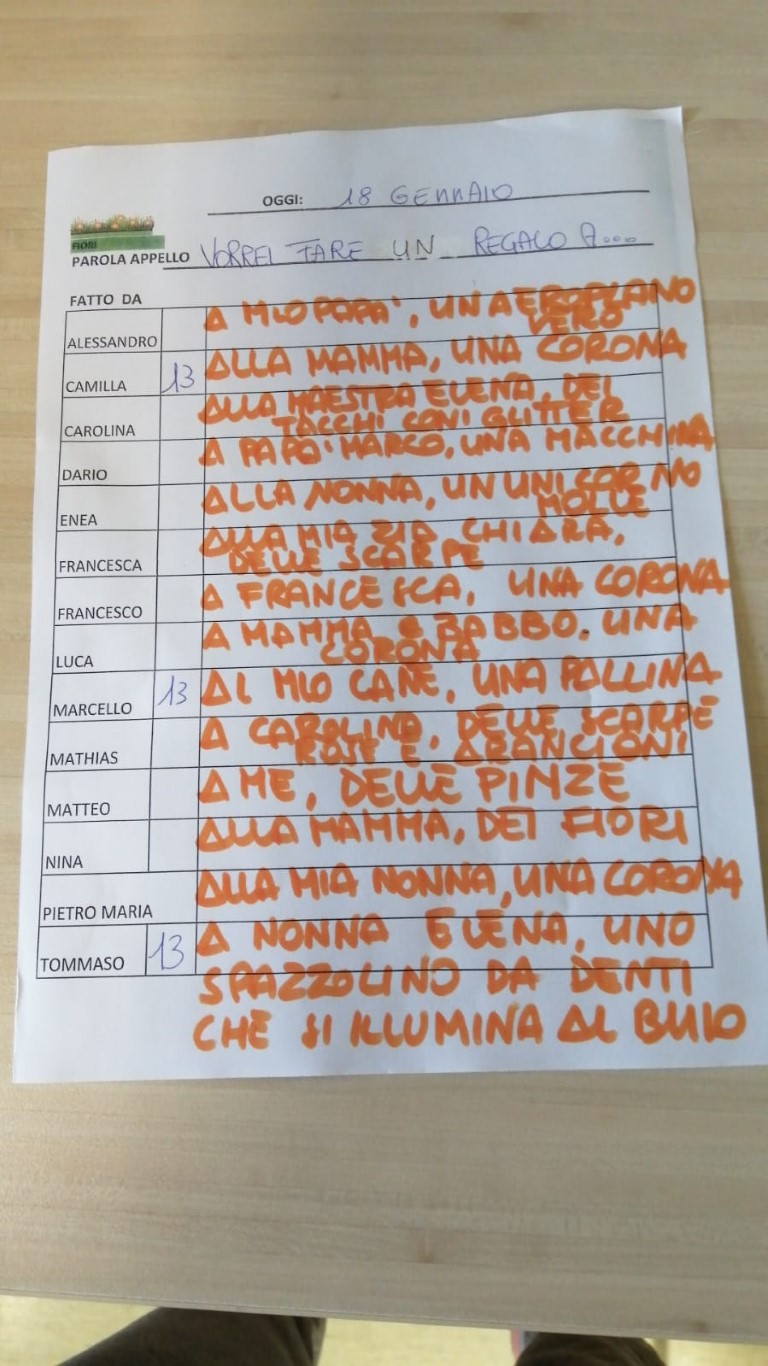 OGGI: 18 GENNAIO
FIORI
PAROLA APPELLO VORREI FARE UN REGALO A...
FATTO DA
ALESSANDRO A MIO PAPA', UN AEROPLANO
VERO
CAMILLA 13 ALLA MAMMA, UNA CORONA
CAROLINA ALLA MAESTRA ELENA, DEI
TACCHI CON I GLITTER
DARIO A PAPA' MARCO, UNA MACCHINA
ENEA ALLA NONNA, UN UNICORNO
MOLLE
FRANCESCA ALLA MIA ZIA CHIARA,
DELLE SCARPE
FRANCESCO A FRANCESCA, UNA CORONA
LUCA A MAMMA E BABBO. UNA
CORONA
MARCELLO 13 AL MIO CANE, UNA PALLINA
MATHIAS A CAROLINA, DELLE SCARPE
ROSE E ARANCIONI
MATTEO A ME, DELLE PINZE
NINA ALLA MAMMA, DEI FIORI
PIETRO MARIA ALLA MIA NONNA, UNA CORONA
TOMMASO 13 A NONNA ELENA, UNO
SPAZZOLINO DA DENTI
CHE SI ILLUMINA AL BUIO